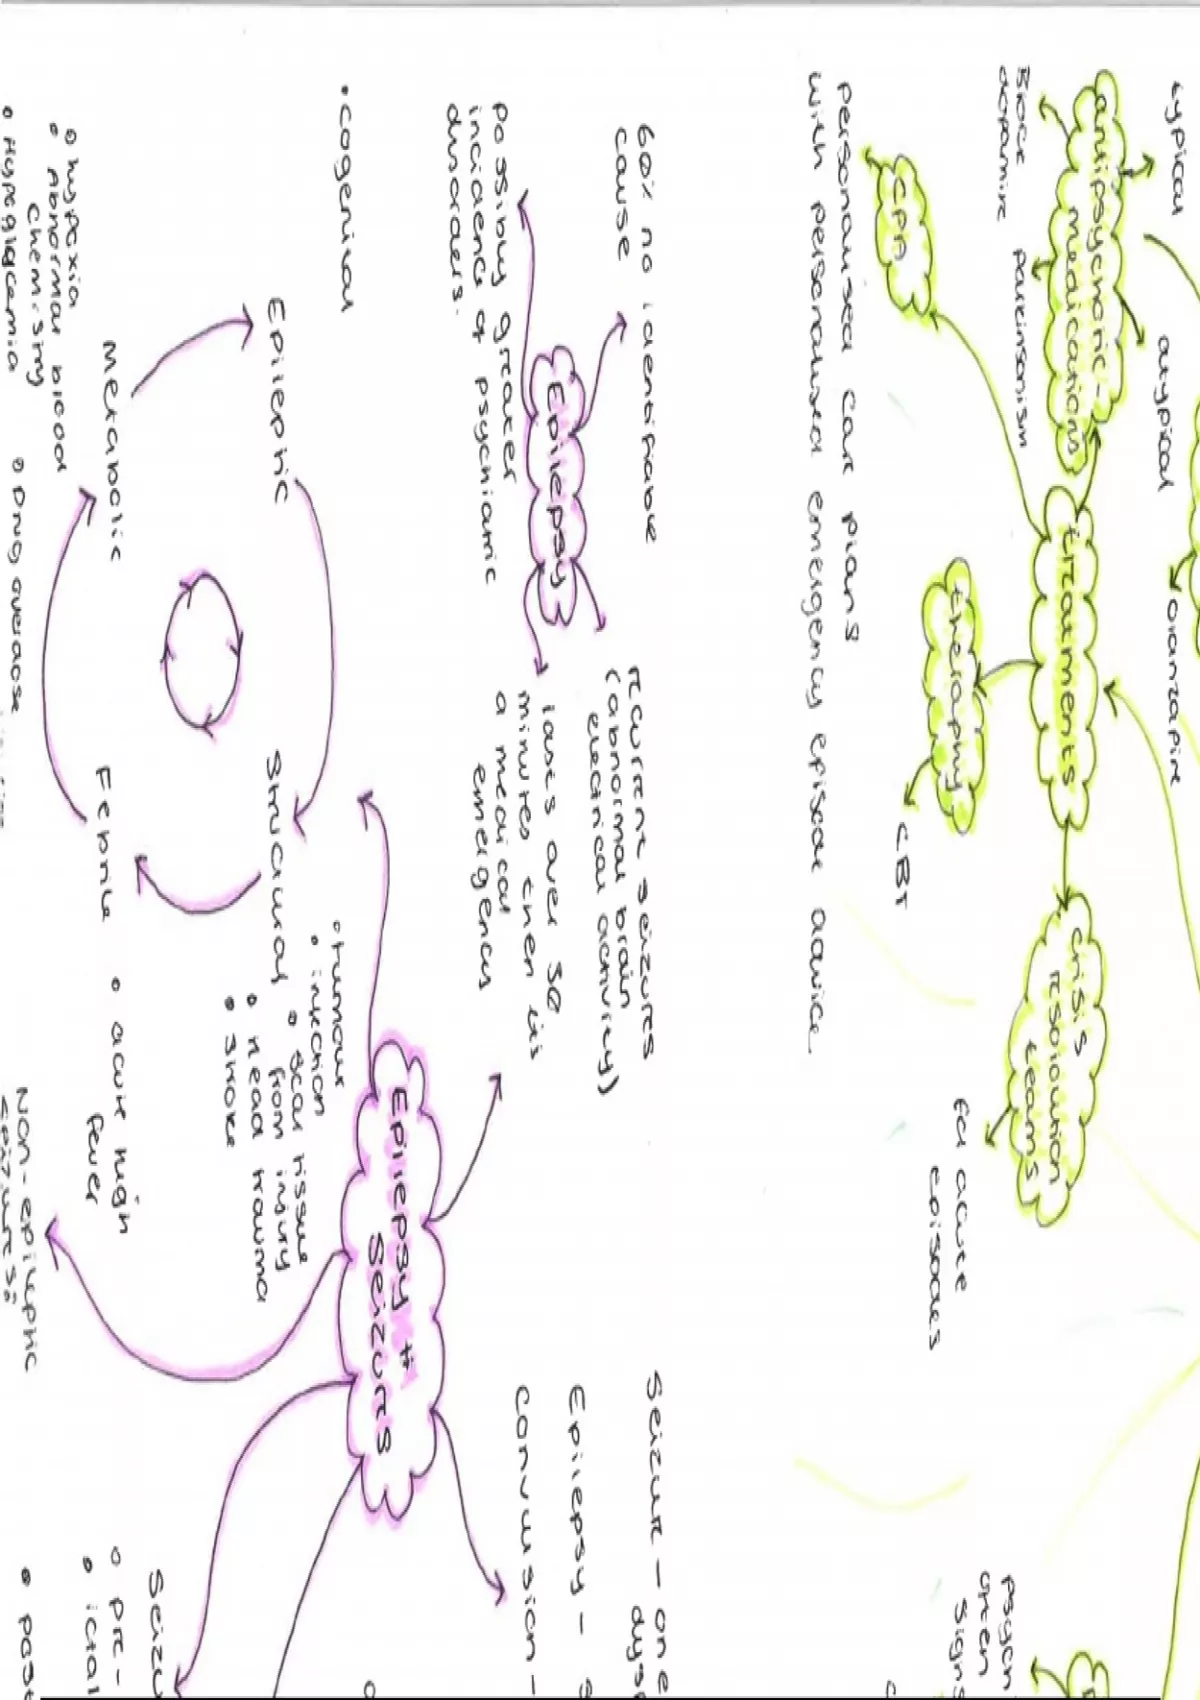 typical
atypical
olanzapine
antipsychotic-
medications
Block
dopamine
parkinsonism
treatments
crisis
resoloution
teams
for acute
episodes
therapy
CBT
CPA
personalised care plans
with personalised emergency episode advice
psych
often
signs
60% no identifiable
cause
Epilepsy
possibly greater
incidence of psychiatric
disorders.
recurrent seizures
(abnormal brain
electrical activity)
lasts over 30
minutes then its
a medical
emergency
Seizure - one
Epilepsy -
convulsion -
Epilepsy +
Seizures
• cogenital
Epileptic
Structural
• tumour
• infection
• scar tissue
from injury
• head trauma
• stroke
Metabolic
• hypoxia
• Abnormal blood
chemistry
• Hypoglycemia
• Drug overdose
Febrile
• acute high
fever
Non-epileptic
seizures:
Seizu
• pre-
• ictal
• post